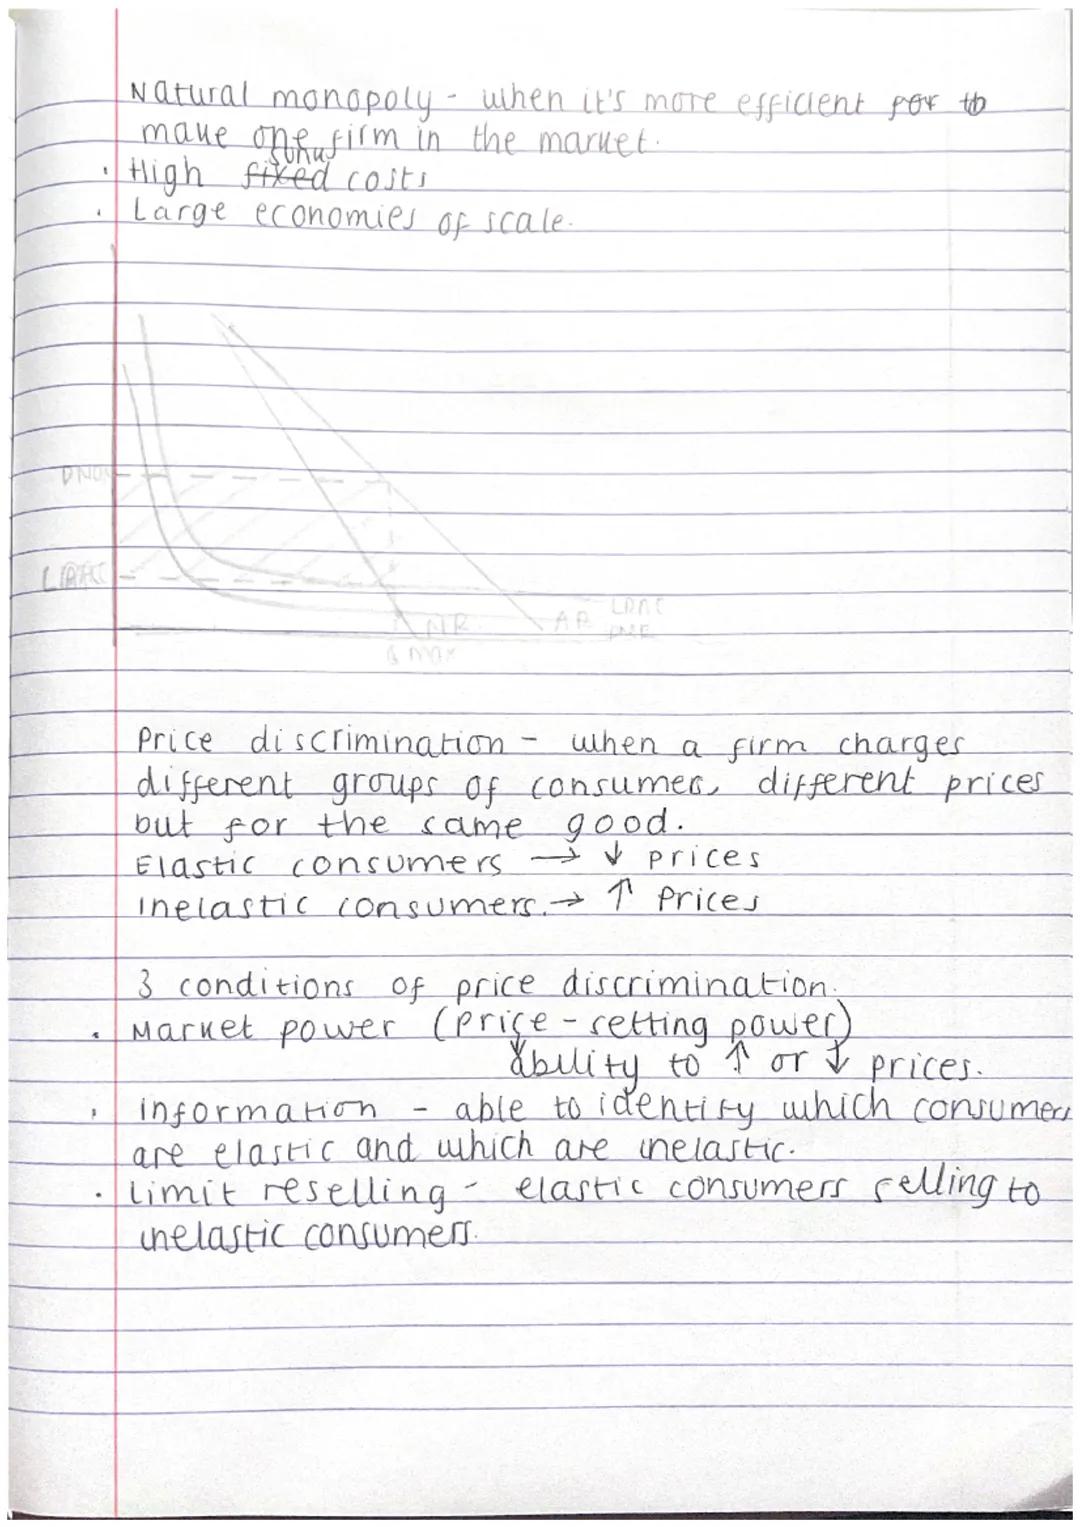 Natural monopoly - when it's more efficient for to
make one firm in the market.
sunk
• High fixed costs
• Large economies of scale.
LRAC
MR
AR
Q max
Price discrimination - when a firm charges
different groups of consumers, different prices
but for the same good.
Elastic consumers → ↓ prices
Inelastic consumers. → ↑ Prices
3 conditions of price discrimination.
• Market power (Price-setting power)
ability to ↑ or ↓ prices.
• information - able to identify which consumers
are elastic and which are inelastic.
• Limit reselling - elastic consumers selling to
inelastic consumers.